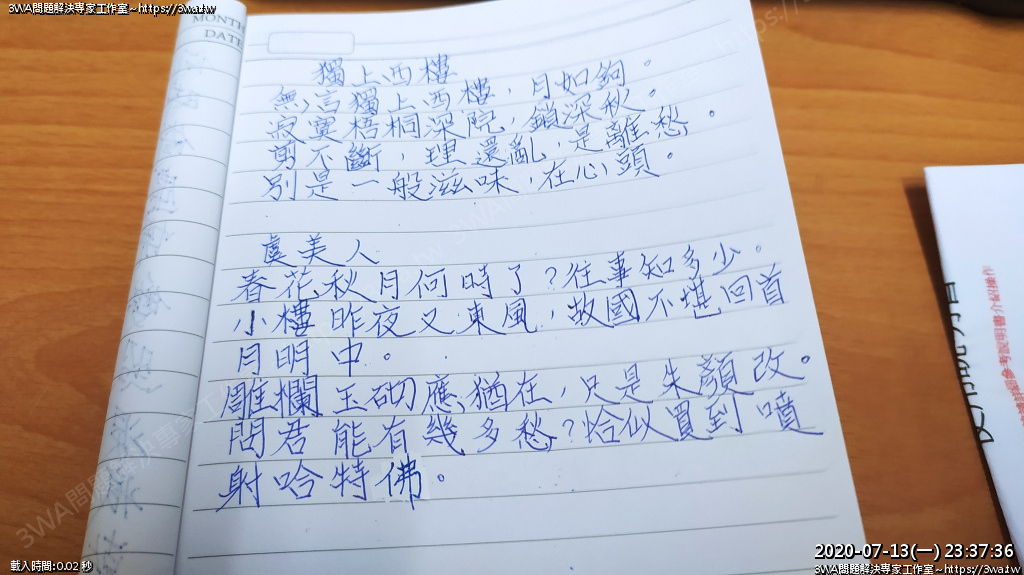 3WA問題解決專家工作室~https://3wa.tw
MONTH
DATE
獨上西樓
無言獨上西樓，月如鉤。
寂寞梧桐深院，鎖深秋。
剪不斷，理還亂，是離愁。
別是一般滋味，在心頭。
虞美人
春花秋月何時了？往事知多少。
小樓昨夜又東風，故國不堪回首
月明中。
雕欄玉砌應猶在，只是朱顏改。
問君能有幾多愁？恰似買到噴
射哈特佛。
載入時間:0.02 秒
2020-07-13(一) 23:37:36
3WA問題解決專家工作室~https://3wa.tw